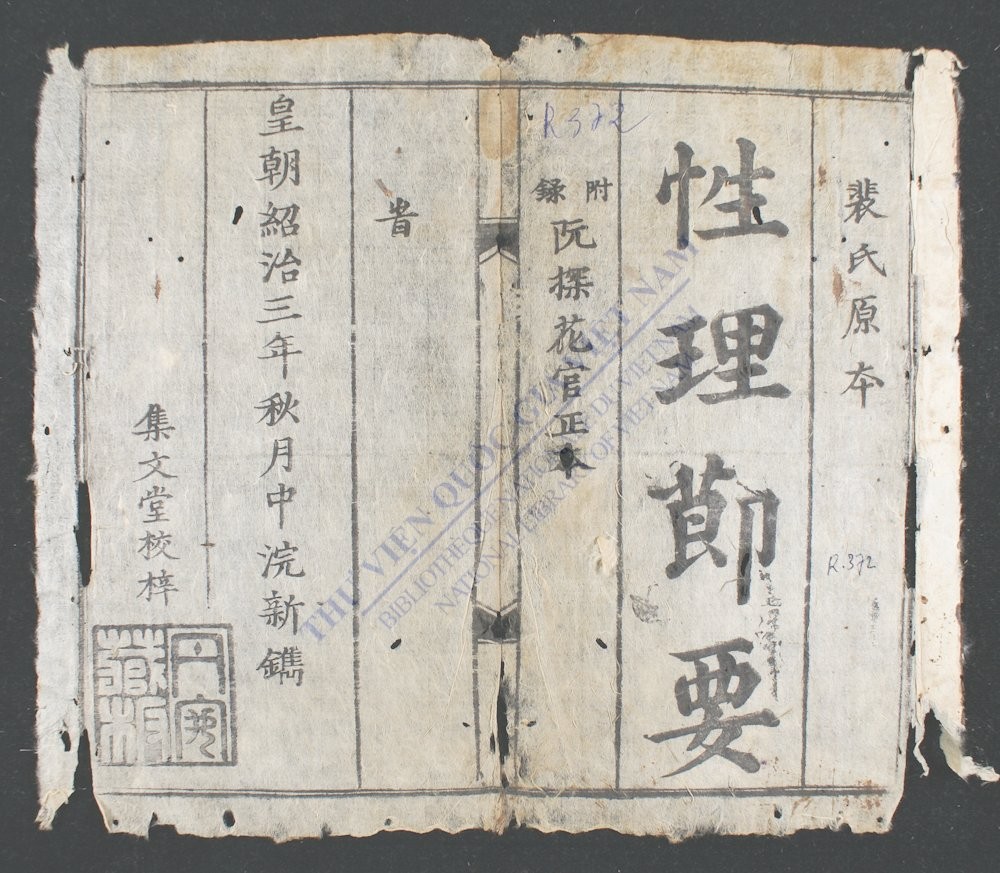 裴氏原本
性理莭要
附錄
阮探花官正本
旹
皇朝紹治三年秋月中浣新鐫
集文堂校梓
R.372
R.372
THƯ VIỆN QUỐC GIA VIỆT NAM
BIBLIOTHÈQUE NATIONALE DU VIETNAM
NATIONAL LIBRARY OF VIETNAM